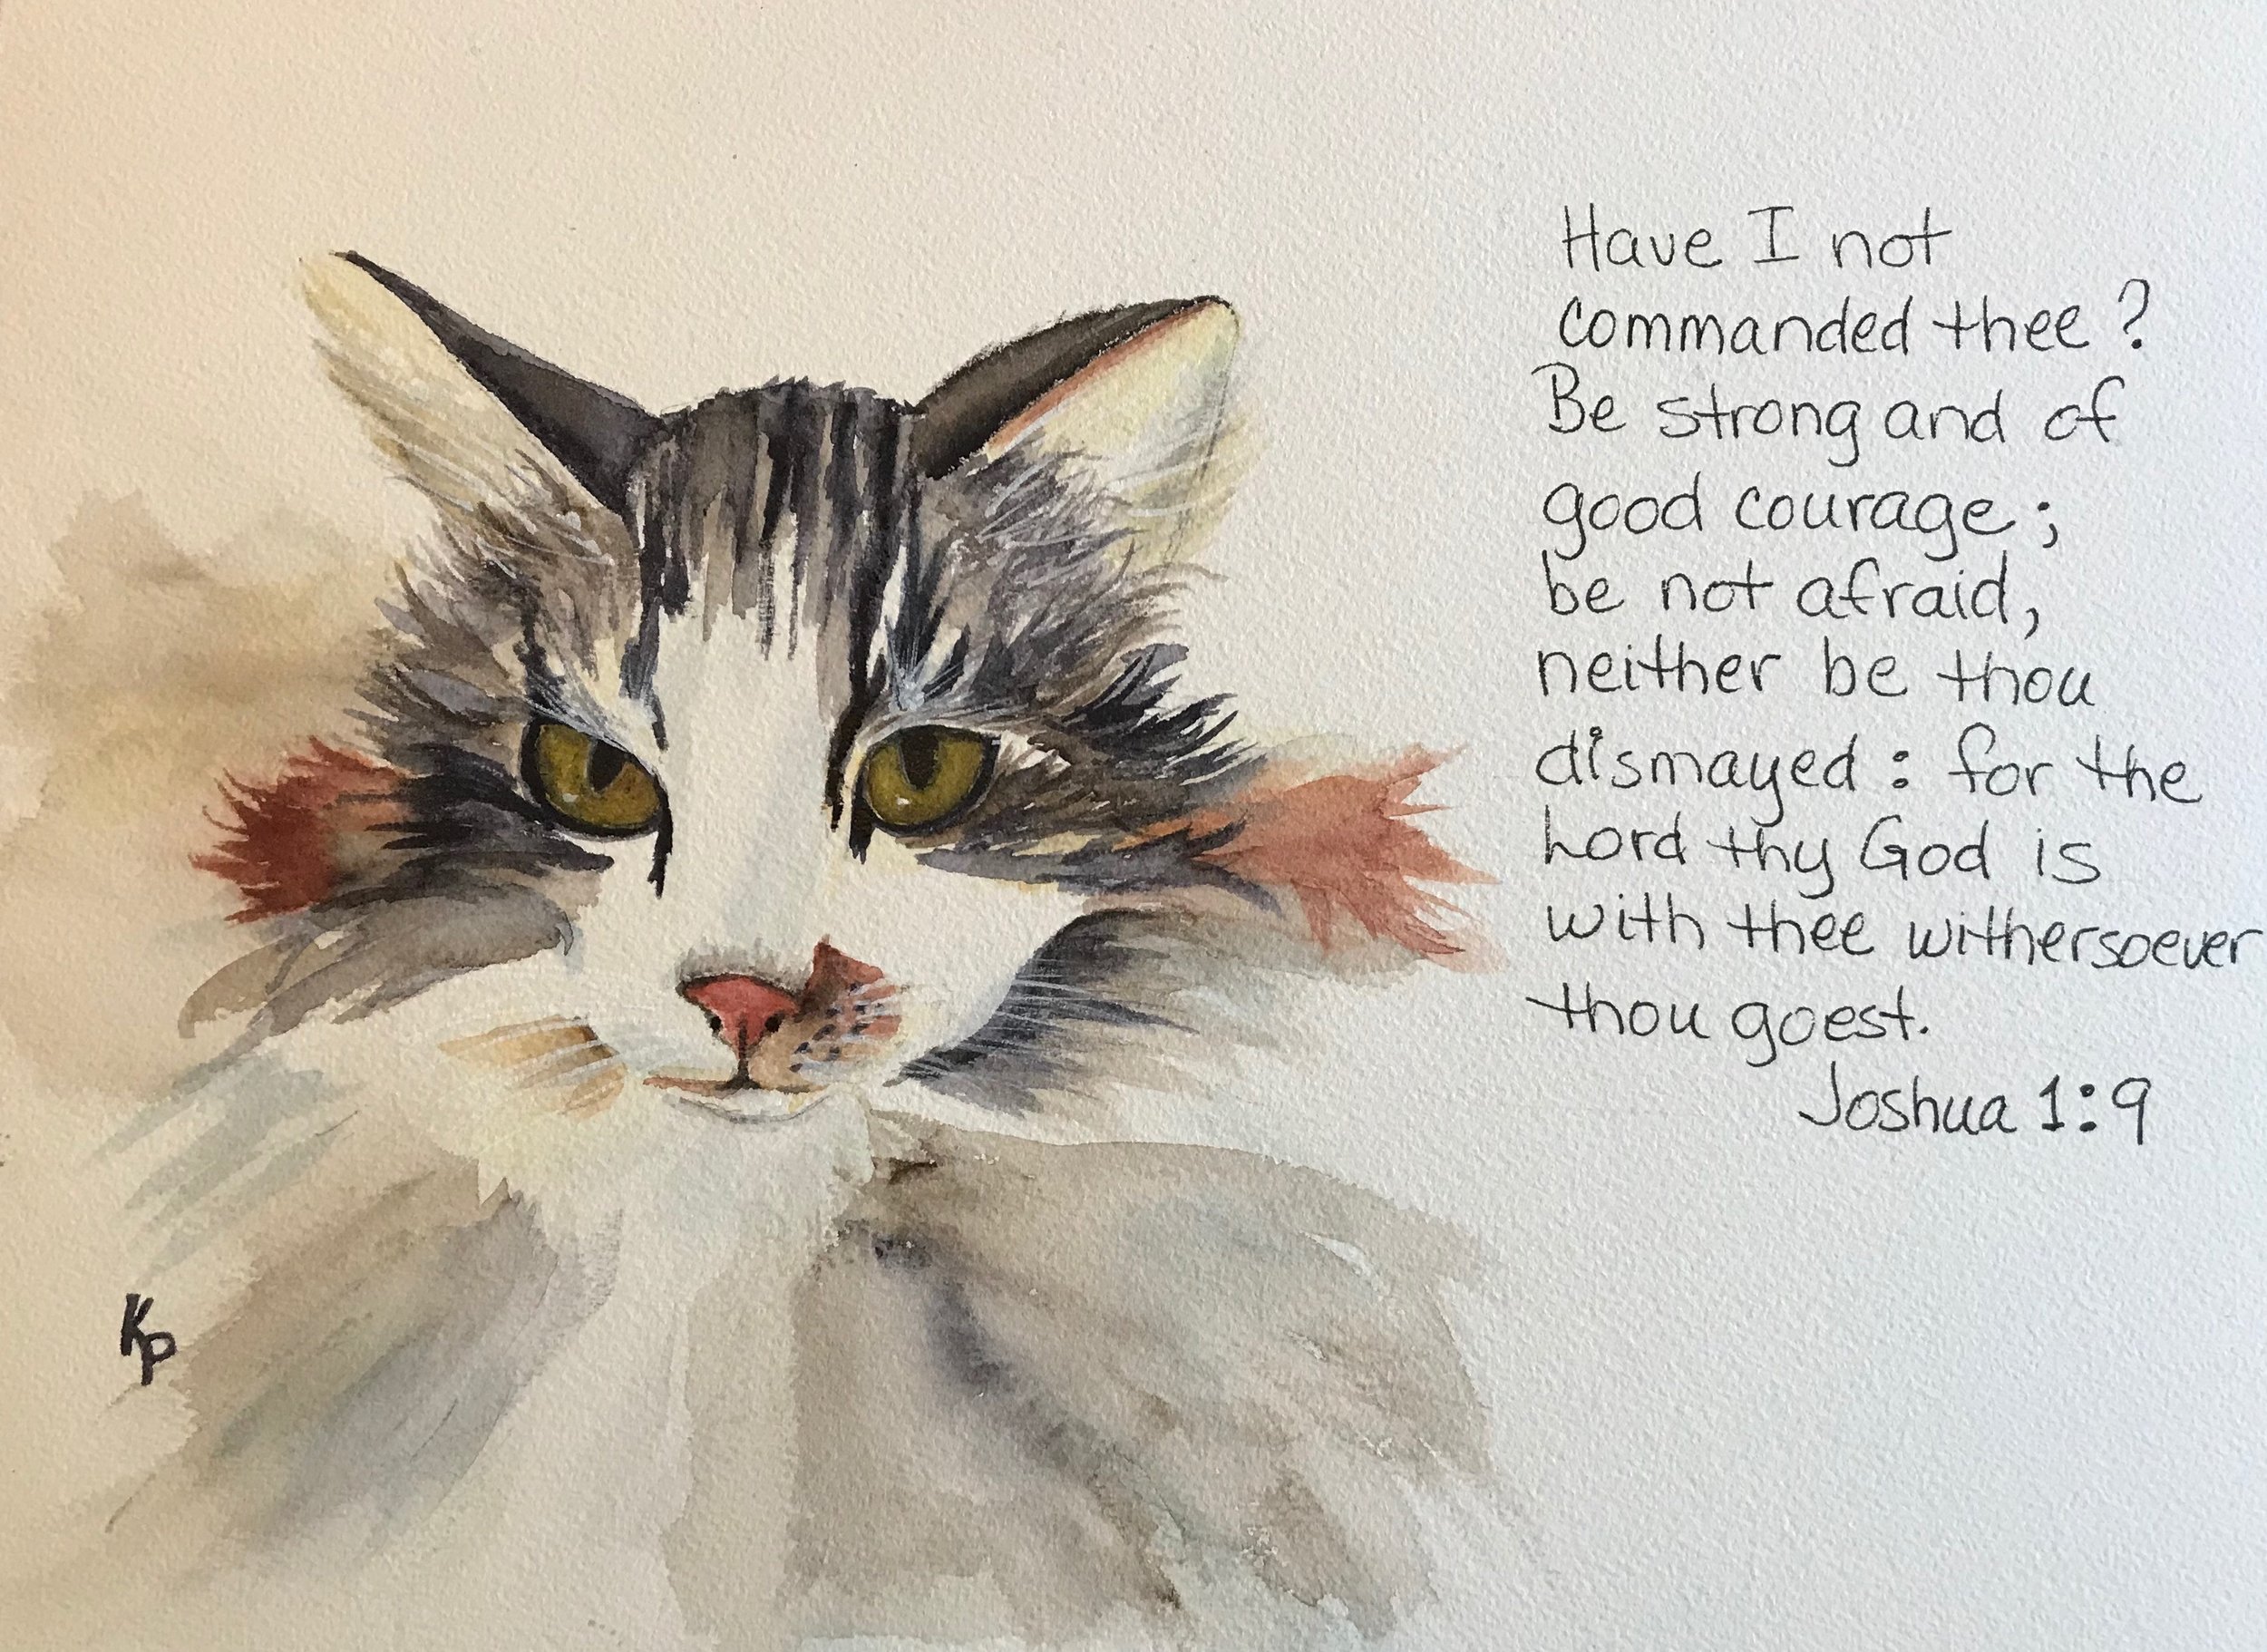 Have I not
commanded thee?
Be strong and of
good courage;
be not afraid,
neither be thou
dismayed: for the
Lord thy God is
with thee withersoever
thou goest.
Joshua 1:9
KP